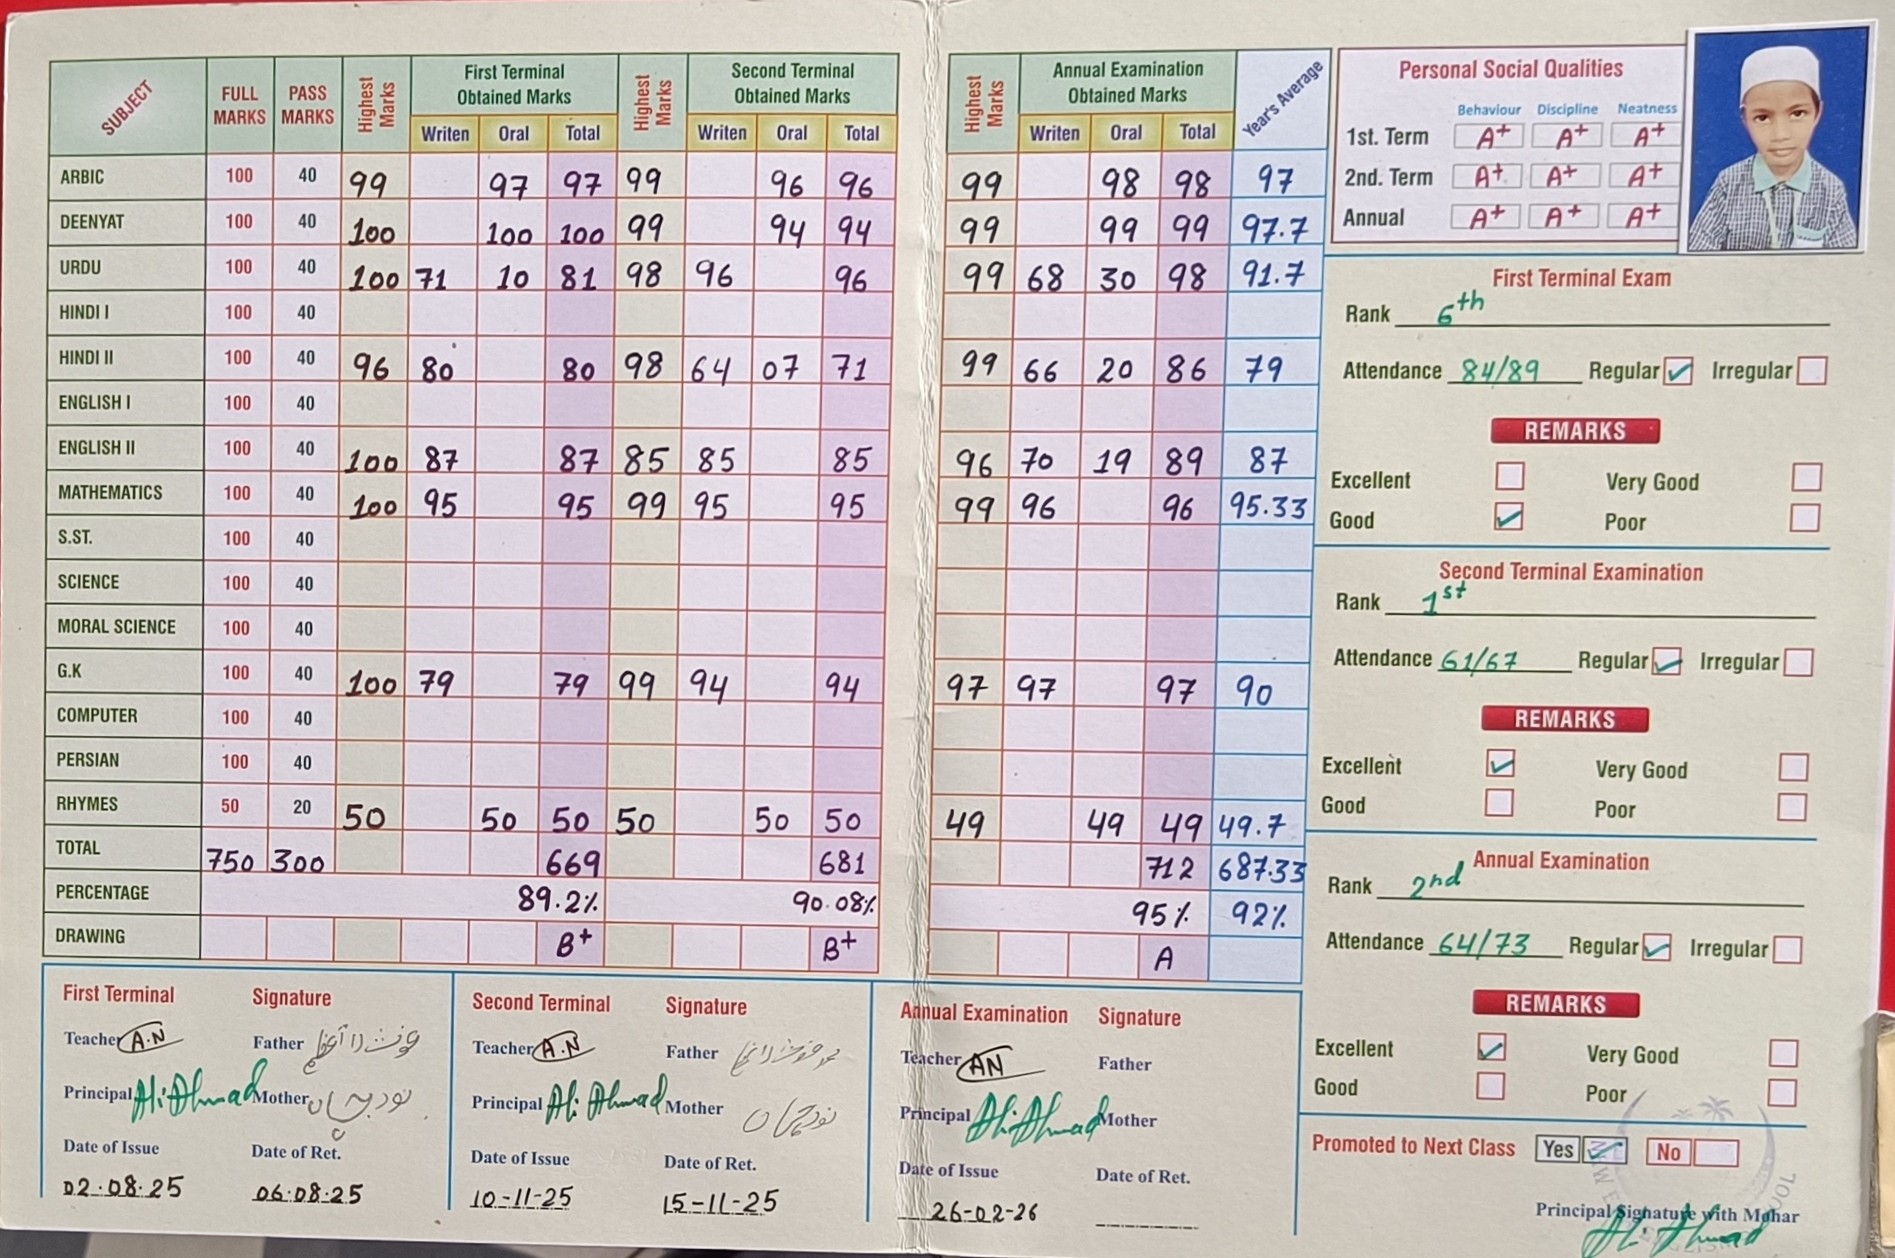 SUBJECT FULL MARKS PASS MARKS Highest Marks First Terminal Obtained Marks Highest Marks Second Terminal Obtained Marks Highest Marks Annual Examination Obtained Marks Year's Average
Writen Oral Total Writen Oral Total Writen Oral Total
ARBIC 100 40 99 97 97 99 96 96 99 98 98 97
DEENYAT 100 40 100 100 100 99 94 94 99 99 99 97.7
URDU 100 40 100 71 10 81 98 96 96 99 68 30 98 91.7
HINDI I 100 40
HINDI II 100 40 96 80 80 98 64 07 71 99 66 20 86 79
ENGLISH I 100 40
ENGLISH II 100 40 100 87 87 85 85 85 96 70 19 89 87
MATHEMATICS 100 40 100 95 95 99 95 95 99 96 96 95.33
S.ST. 100 40
SCIENCE 100 40
MORAL SCIENCE 100 40
G.K 100 40 100 79 79 99 94 94 97 97 97 90
COMPUTER 100 40
PERSIAN 100 40
RHYMES 50 20 50 50 50 50 50 50 49 49 49 49.7
TOTAL 750 300 669 681 712 687.33
PERCENTAGE 89.2% 90.08% 95% 92%
DRAWING B+ B+ A
First Terminal Signature
Teacher A.N Father
Principal Ali Ahmad Mother
Date of Issue Date of Ret.
02.08.25 06.08.25
Second Terminal Signature
Teacher A.N Father
Principal Ali Ahmad Mother
Date of Issue Date of Ret.
10-11-25 15-11-25
Annual Examination Signature
Teacher AN Father
Principal Ali Ahmad Mother
Date of Issue Date of Ret.
26-02-26
Personal Social Qualities
Behaviour Discipline Neatness
1st. Term A+ A+ A+
2nd. Term A+ A+ A+
Annual A+ A+ A+
First Terminal Exam
Rank 6th
Attendance 84/89 Regular Irregular
REMARKS
Excellent Very Good
Good Poor
Second Terminal Examination
Rank 1st
Attendance 61/67 Regular Irregular
REMARKS
Excellent Very Good
Good Poor
Annual Examination
Rank 2nd
Attendance 64/73 Regular Irregular
REMARKS
Excellent Very Good
Good Poor
Promoted to Next Class Yes No
Principal Signature with Mohar
Ali Ahmad